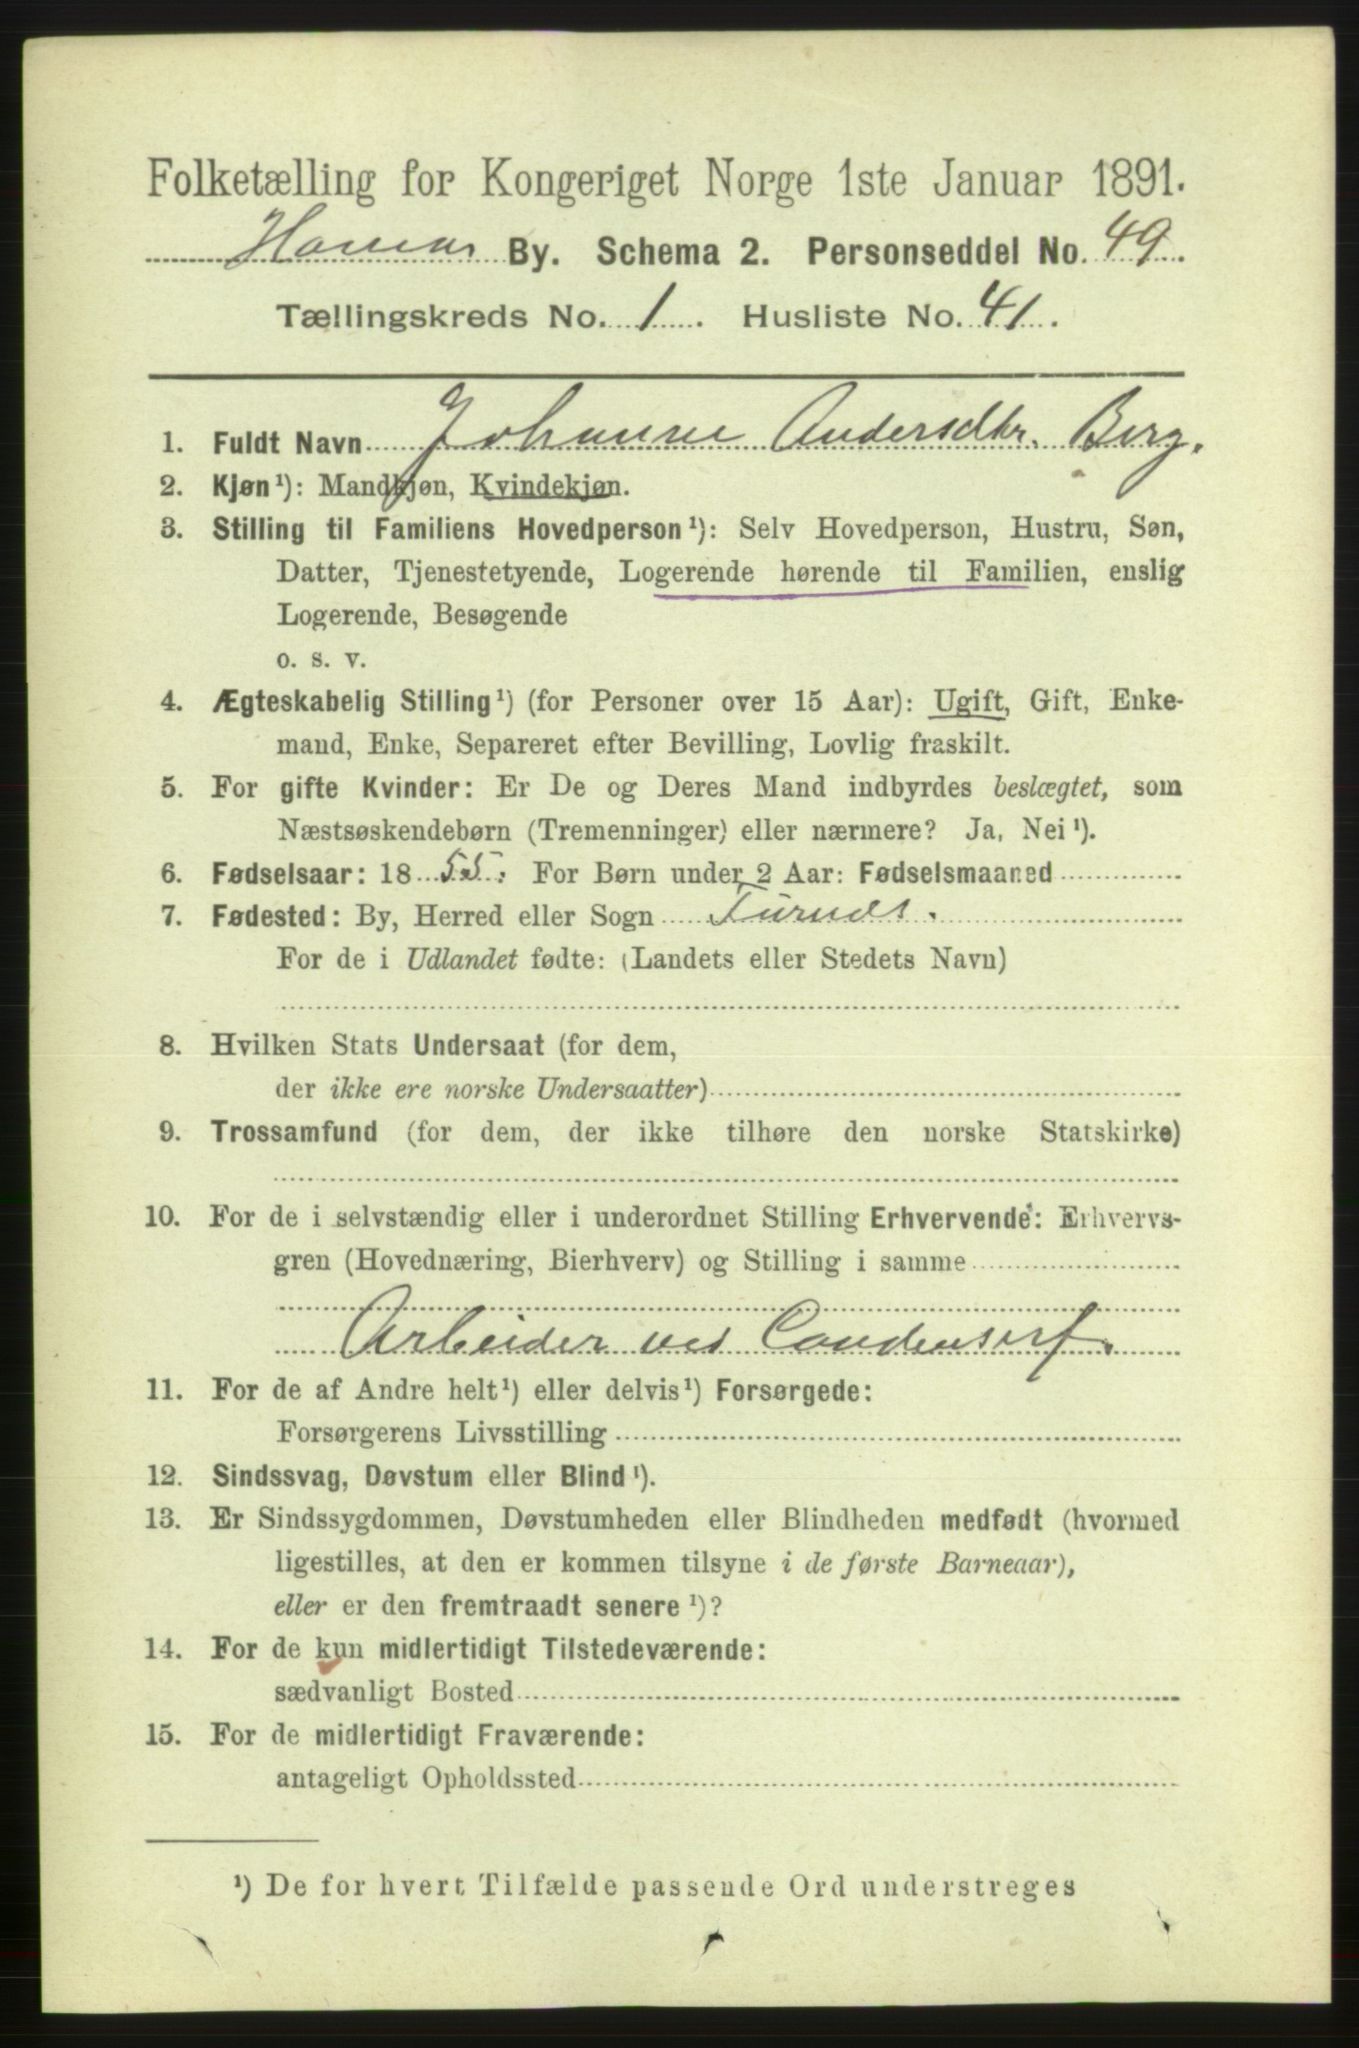 Folketælling for Kongeriget Norge 1ste Januar 1891.
Hamar By. Schema 2. Personseddel No. 49.
Tællingskreds No. 1. Husliste No. 41.
1. Fuldt Navn Johanne Andersdtr. Berg.
2. Kjøn¹): Mandkjøn, Kvindekjøn.
3. Stilling til Familiens Hovedperson¹): Selv Hovedperson, Hustru, Søn,
Datter, Tjenestetyende, Logerende hørende til Familien, enslig
Logerende, Besøgende
o. s. v.
4. Ægteskabelig Stilling¹) (for Personer over 15 Aar): Ugift, Gift, Enke-
mand, Enke, Separeret efter Bevilling, Lovlig fraskilt.
5. For gifte Kvinder: Er De og Deres Mand indbyrdes beslægtet, som
Næstsøskendebørn (Tremenninger) eller nærmere? Ja, Nei¹).
6. Fødselsaar: 1855. For Børn under 2 Aar: Fødselsmaaned
7. Fødested: By, Herred eller Sogn Furnes.
For de i Udlandet fødte: (Landets eller Stedets Navn)
8. Hvilken Stats Undersaat (for dem,
der ikke ere norske Undersaatter)
9. Trossamfund (for dem, der ikke tilhøre den norske Statskirke)
10. For de i selvstændig eller i underordnet Stilling Erhvervende: Erhvervs-
gren (Hovednæring, Bierhverv) og Stilling i samme
Arbeider ved Condenserf.
11. For de af Andre helt¹) eller delvis¹) Forsørgede:
Forsørgerens Livsstilling
12. Sindssvag, Døvstum eller Blind¹).
13. Er Sindssygdommen, Døvstumheden eller Blindheden medfødt (hvormed
ligestilles, at den er kommen tilsyne i de første Barneaar),
eller er den fremtraadt senere¹)?
14. For de kun midlertidigt Tilstedeværende:
sædvanligt Bosted
15. For de midlertidigt Fraværende:
antageligt Opholdssted
¹) De for hvert Tilfælde passende Ord understreges